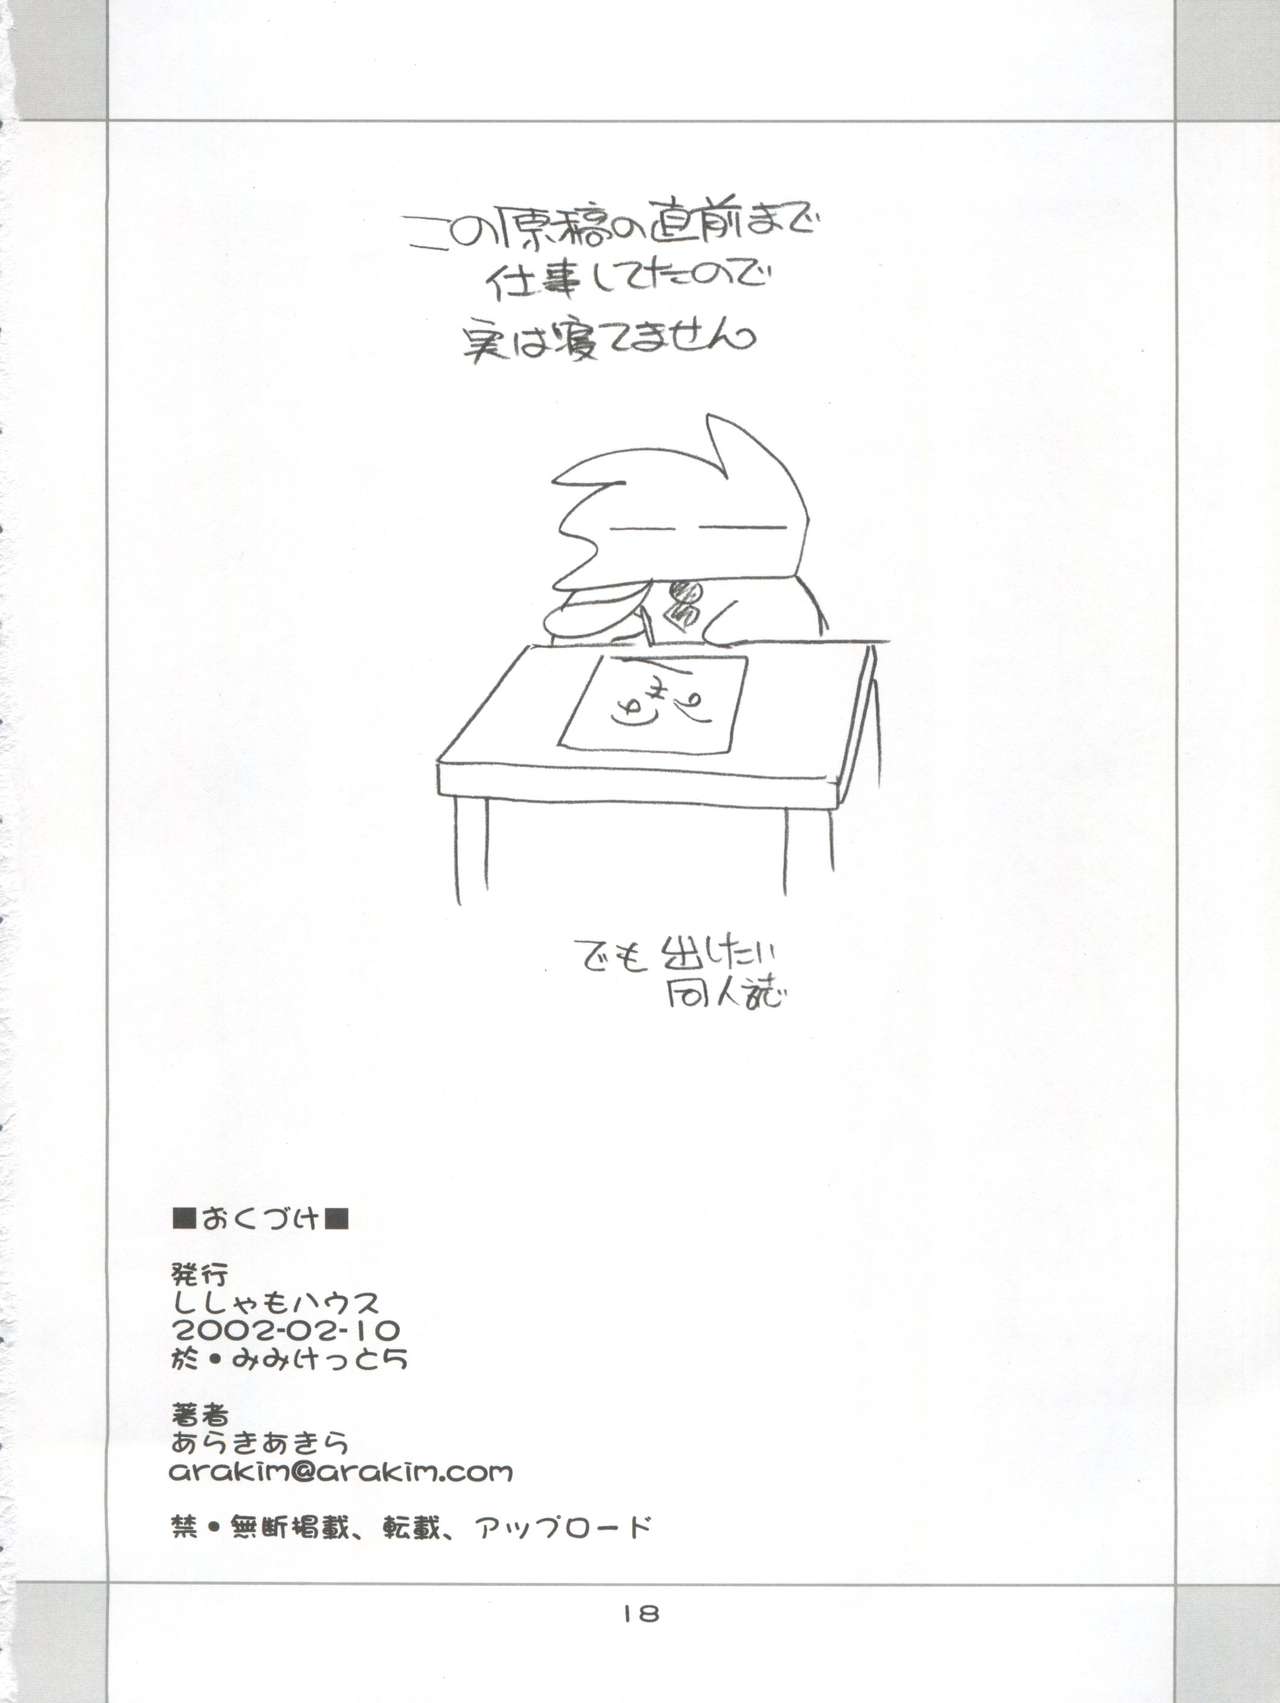 この原稿の直前まで
仕事してたので
実は寝てません。
でも 出したい
同人誌
■おくづけ■
発行
ししゃもハウス
2002-02-10
於・みみけっと5
著者
あらきあきら
arakim@arakim.com
禁・無断掲載、転載、アップロード
18